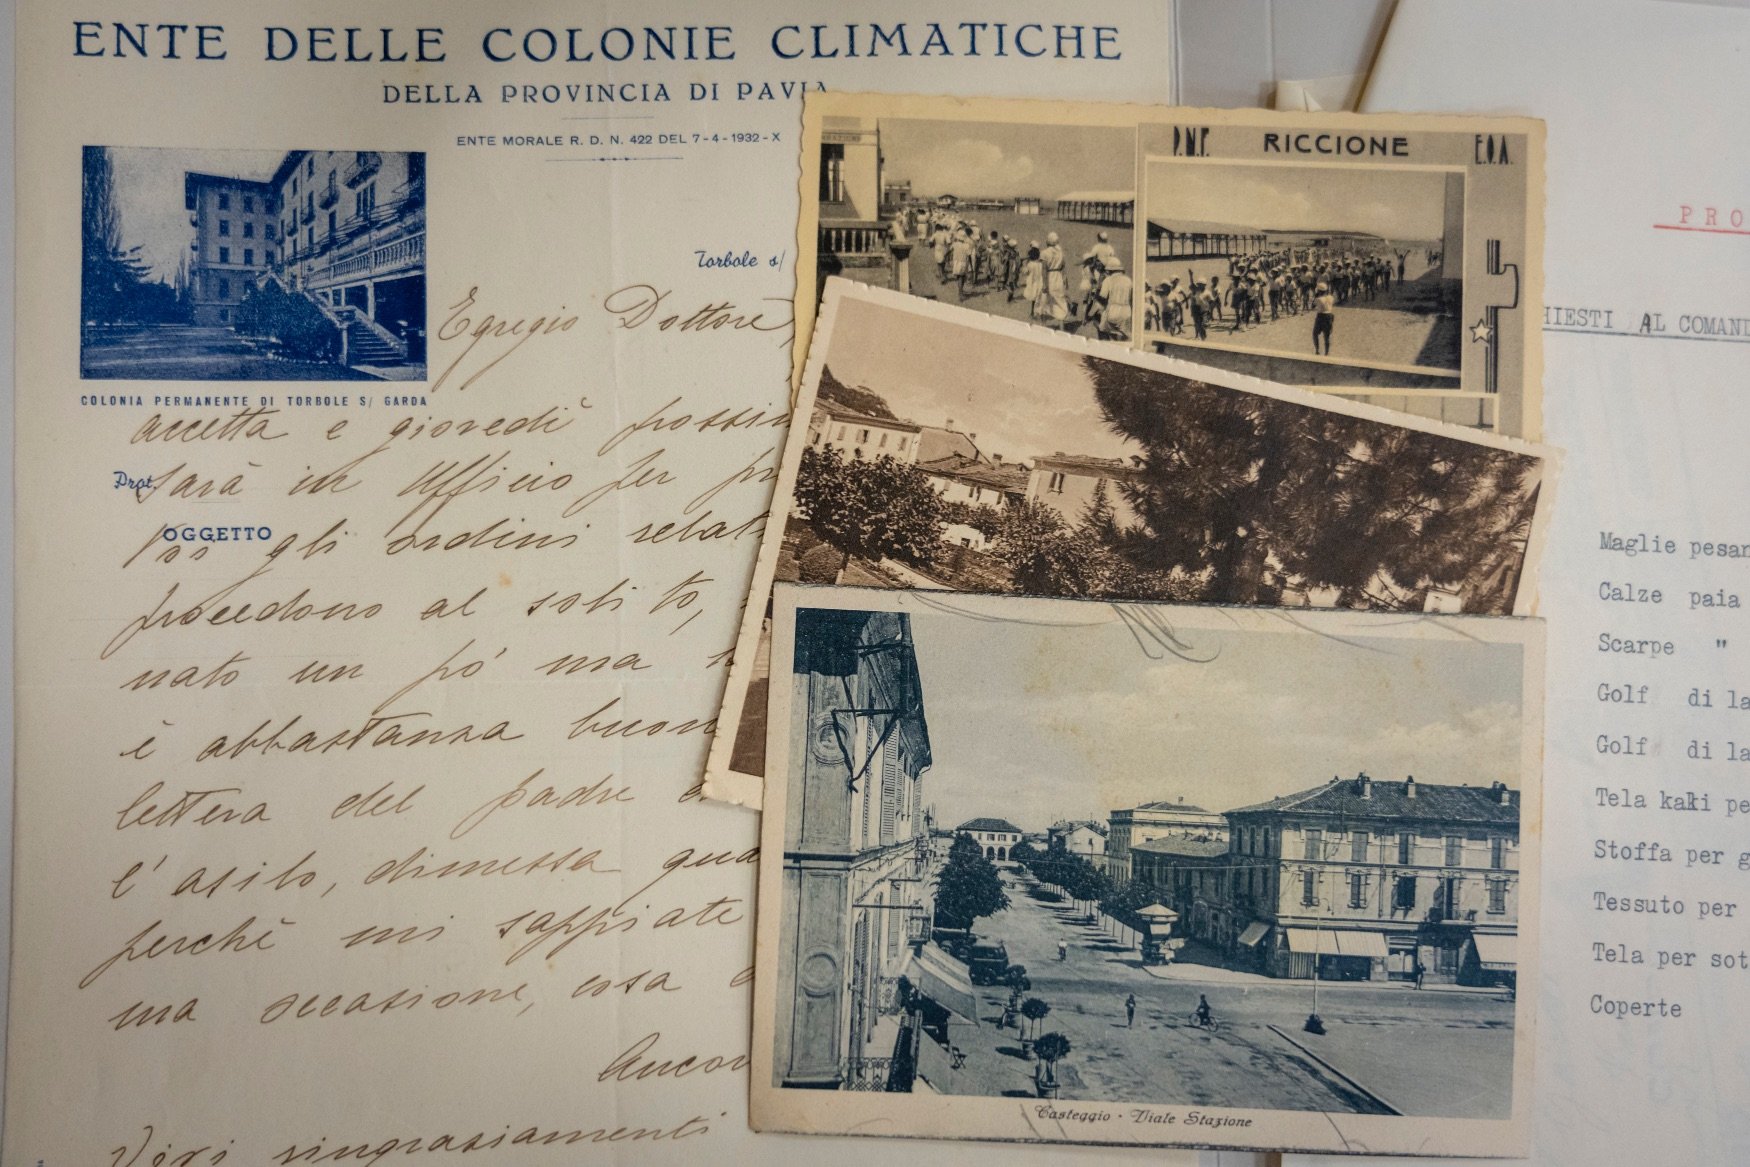 ENTE DELLE COLONIE CLIMATICHE
DELLA PROVINCIA DI PAVIA
ENTE MORALE R. D. N. 422 DEL 7-4-1932-X
COLONIA PERMANENTE DI TORBOLE S/ GARDA
Torbole s/
Prot.
OGGETTO
Egregio Dottore,
accetta e giovedì
sarà in Ufficio per
gli ordini
procedono al solito,
nato un pò ma
è abbastanza
lettera del padre
l'asilo, dimessa
perchè mi sappiate
ma occasione, cosa
Vivi ringraziamenti
P.N.F. RICCIONE E.O.A.
Casteggio - Viale Stazione
PRO
HIESTI AL COMAND
Maglie pesan
Calze paia
Scarpe "
Golf di la
Golf di la
Tela kaki pe
Stoffa per g
Tessuto per
Tela per sot
Coperte